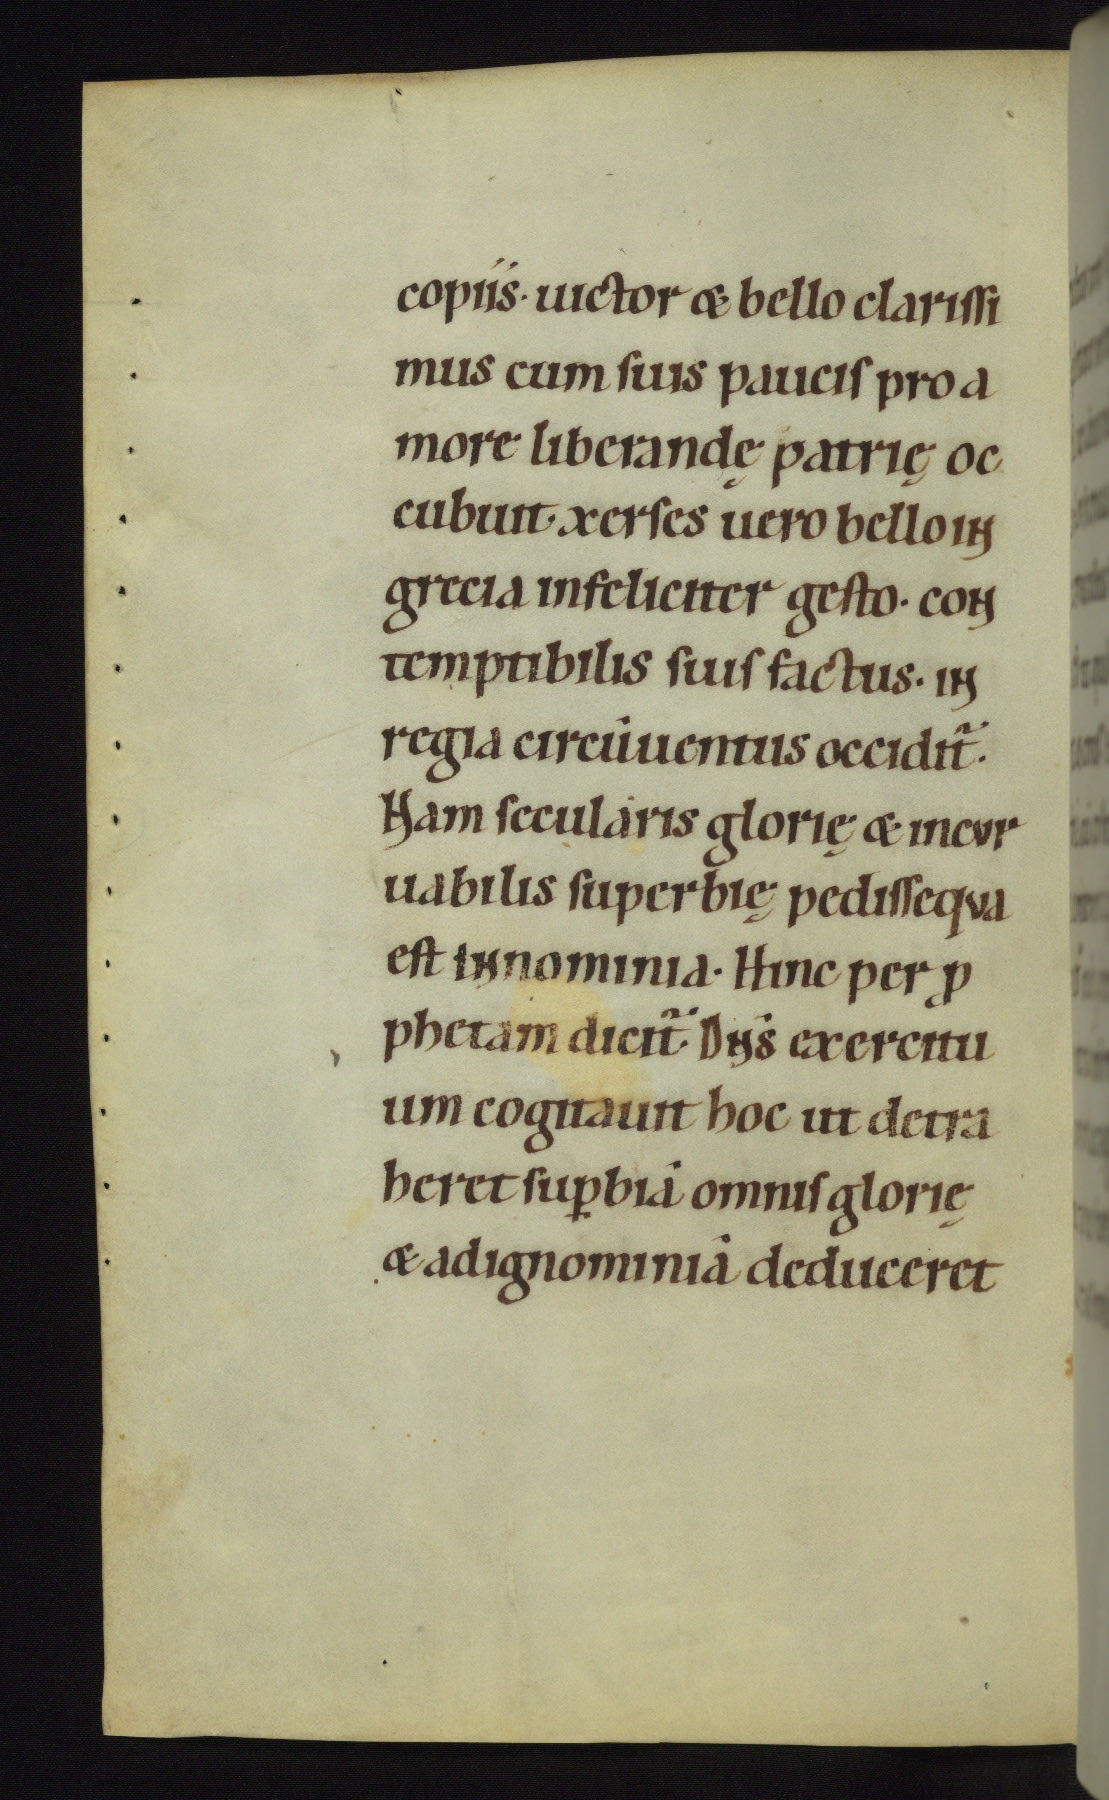 copiis. uictor & bello clarissi
mus cum suis paucis pro a
more liberandę patrię oc
cubuit. xerses uero bello in
grecia infeliciter gesto. con
temptibilis suis factus. in
regia circūuentus occidit᷑.
Nam secularis glorię & incur
uabilis superbię pedissequa
est innominia. Hinc per ꝓ
phetam dicit᷑. Dn̄s exercitu
um cogitauit hoc ut detra
heret suꝑbiā omnis glorię
& ad ignominiā deduceret